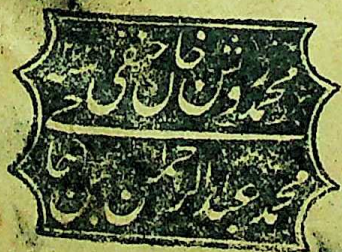 محمد روشن خاں حنفی
محمد عبد الرحمن بن حاجی